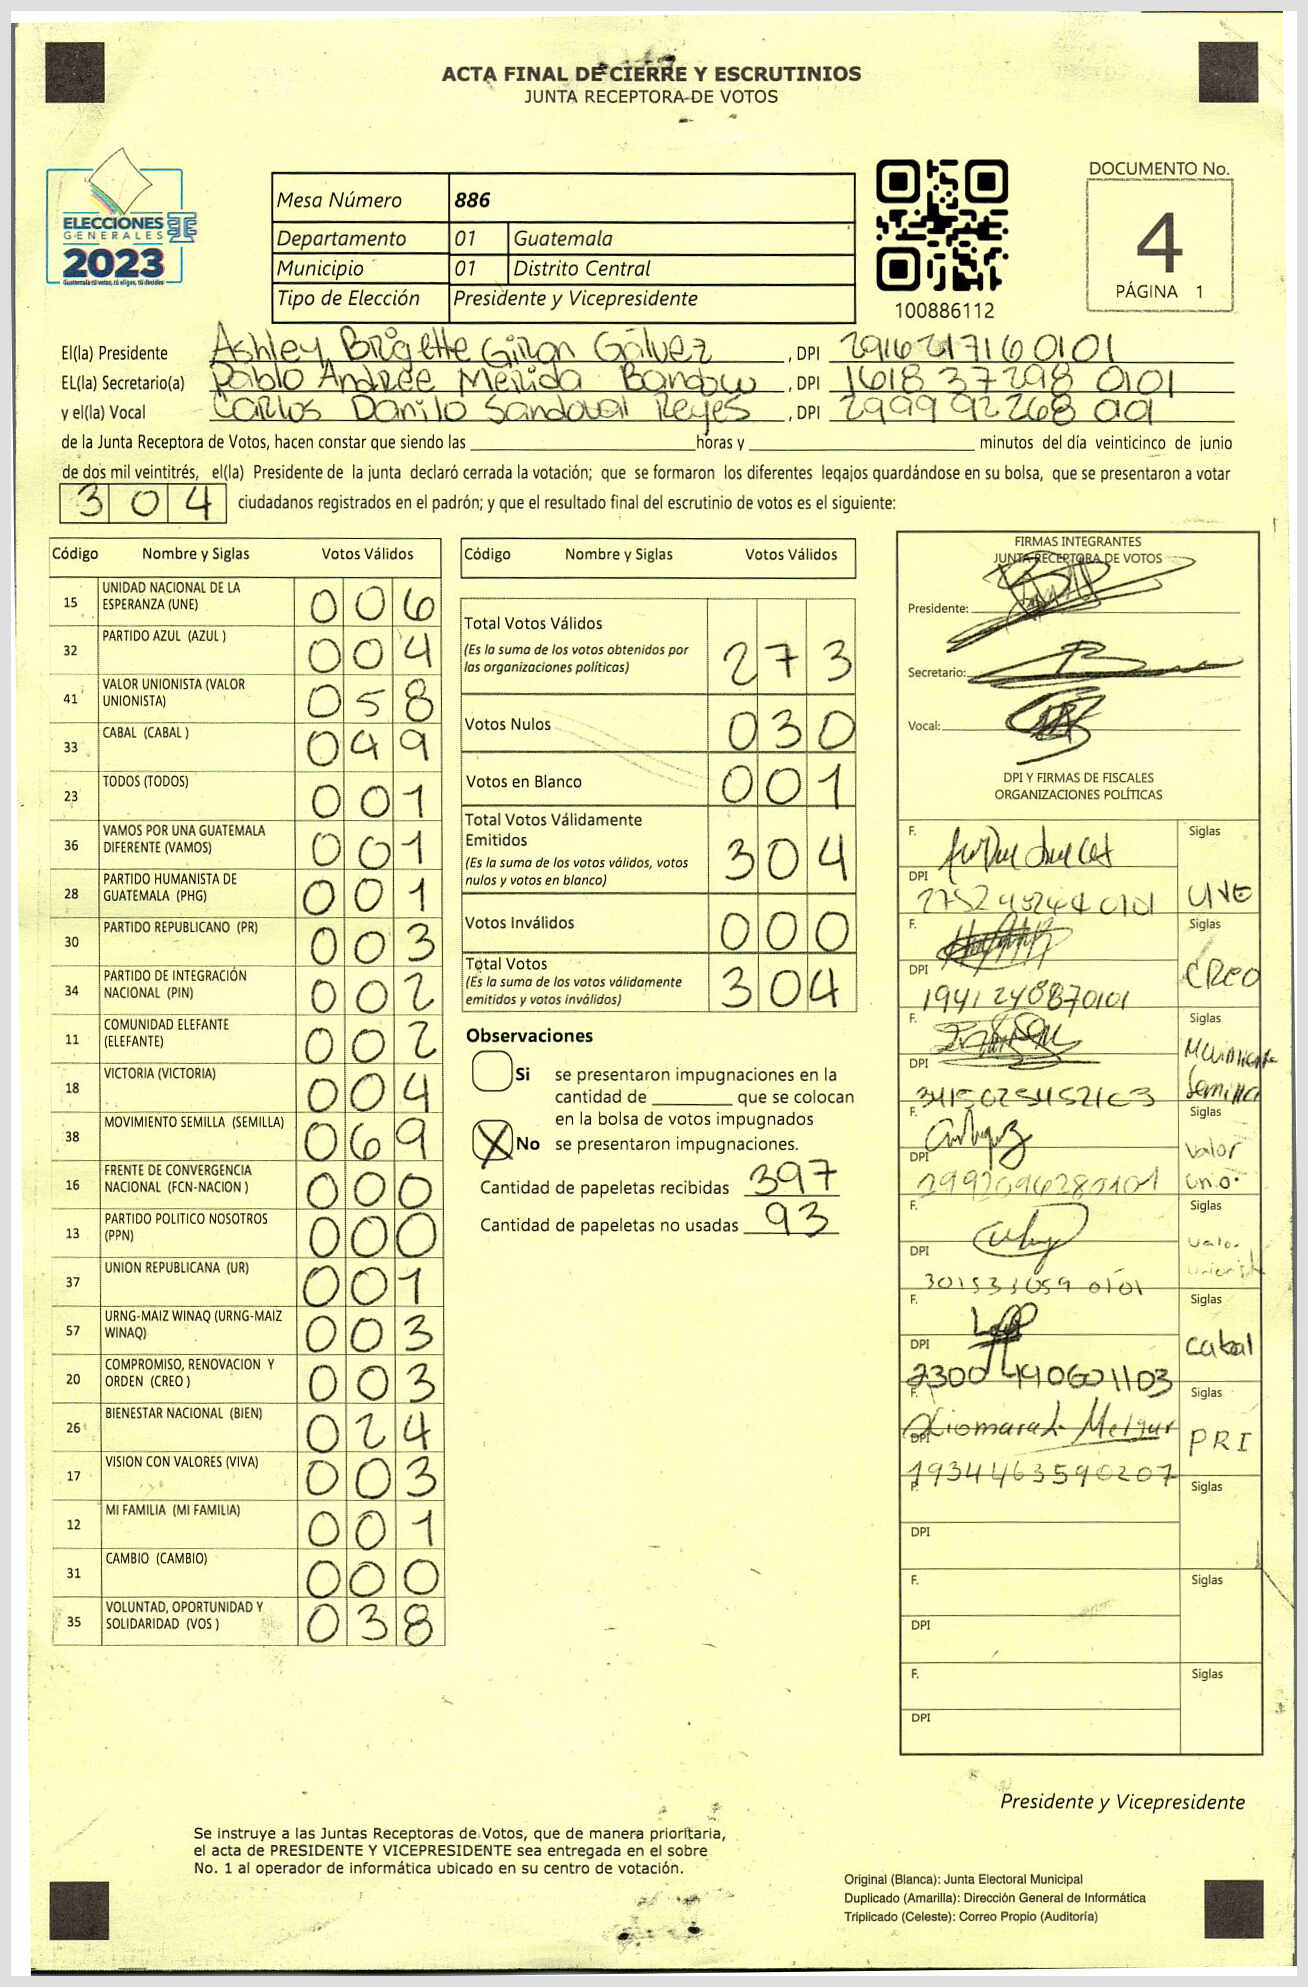 ACTA FINAL DE CIERRE Y ESCRUTINIOS
JUNTA RECEPTORA DE VOTOS
ELECCIONES
GENERALES
2023
Guatemala tú votas, tú eliges, tú decides
Mesa Número 886
Departamento 01 Guatemala
Municipio 01 Distrito Central
Tipo de Elección Presidente y Vicepresidente
100886112
DOCUMENTO No.
4
PÁGINA 1
El(la) Presidente Ashley Brigette Giron Gálvez, DPI 2916217160101
EL(la) Secretario(a) Pablo Andree Merida, DPI 1618 37298 0101
y el(la) Vocal Carlos Danilo Sandoval Reyes, DPI 2999 92268
de la Junta Receptora de Votos, hacen constar que siendo las ______ horas y ______ minutos del día veinticinco de junio
de dos mil veintitrés, el(la) Presidente de la junta declaró cerrada la votación; que se formaron los diferentes legajos guardándose en su bolsa, que se presentaron a votar
304 ciudadanos registrados en el padrón; y que el resultado final del escrutinio de votos es el siguiente:
Código Nombre y Siglas Votos Válidos
15 UNIDAD NACIONAL DE LA ESPERANZA (UNE) 006
32 PARTIDO AZUL (AZUL ) 004
41 VALOR UNIONISTA (VALOR UNIONISTA) 058
33 CABAL (CABAL ) 049
23 TODOS (TODOS) 001
36 VAMOS POR UNA GUATEMALA DIFERENTE (VAMOS) 001
28 PARTIDO HUMANISTA DE GUATEMALA (PHG) 001
30 PARTIDO REPUBLICANO (PR) 003
34 PARTIDO DE INTEGRACIÓN NACIONAL (PIN) 002
11 COMUNIDAD ELEFANTE (ELEFANTE) 002
18 VICTORIA (VICTORIA) 004
38 MOVIMIENTO SEMILLA (SEMILLA) 069
16 FRENTE DE CONVERGENCIA NACIONAL (FCN-NACION ) 000
13 PARTIDO POLITICO NOSOTROS (PPN) 000
37 UNION REPUBLICANA (UR) 001
57 URNG-MAIZ WINAQ (URNG-MAIZ WINAQ) 003
20 COMPROMISO, RENOVACION Y ORDEN (CREO ) 003
26 BIENESTAR NACIONAL (BIEN) 024
17 VISION CON VALORES (VIVA) 003
12 MI FAMILIA (MI FAMILIA) 001
31 CAMBIO (CAMBIO) 000
35 VOLUNTAD, OPORTUNIDAD Y SOLIDARIDAD (VOS ) 038
Código Nombre y Siglas Votos Válidos
Total Votos Válidos 273
(Es la suma de los votos obtenidos por las organizaciones políticas)
Votos Nulos 030
Votos en Blanco 001
Total Votos Válidamente Emitidos 304
(Es la suma de los votos válidos, votos nulos y votos en blanco)
Votos Inválidos 000
Total Votos 304
(Es la suma de los votos válidamente emitidos y votos inválidos)
Observaciones
Si se presentaron impugnaciones en la
cantidad de ______ que se colocan
en la bolsa de votos impugnados
X No se presentaron impugnaciones.
Cantidad de papeletas recibidas 397
Cantidad de papeletas no usadas 93
FIRMAS INTEGRANTES
JUNTA RECEPTORA DE VOTOS
Presidente:
Secretario:
Vocal:
DPI Y FIRMAS DE FISCALES
ORGANIZACIONES POLÍTICAS
F. Siglas UNE
DPI
F. Siglas CREO
DPI 1941240870101
F. Siglas Semilla
DPI
F. Siglas Valor
DPI
F. Siglas Valor
DPI
F. Siglas Cabal
DPI
F. Siglas PRI
DPI 1934463590207
F. Siglas
DPI
F. Siglas
DPI
F. Siglas
DPI
Presidente y Vicepresidente
Se instruye a las Juntas Receptoras de Votos, que de manera prioritaria,
el acta de PRESIDENTE Y VICEPRESIDENTE sea entregada en el sobre
No. 1 al operador de informática ubicado en su centro de votación.
Original (Blanca): Junta Electoral Municipal
Duplicado (Amarilla): Dirección General de Informática
Triplicado (Celeste): Correo Propio (Auditoría)